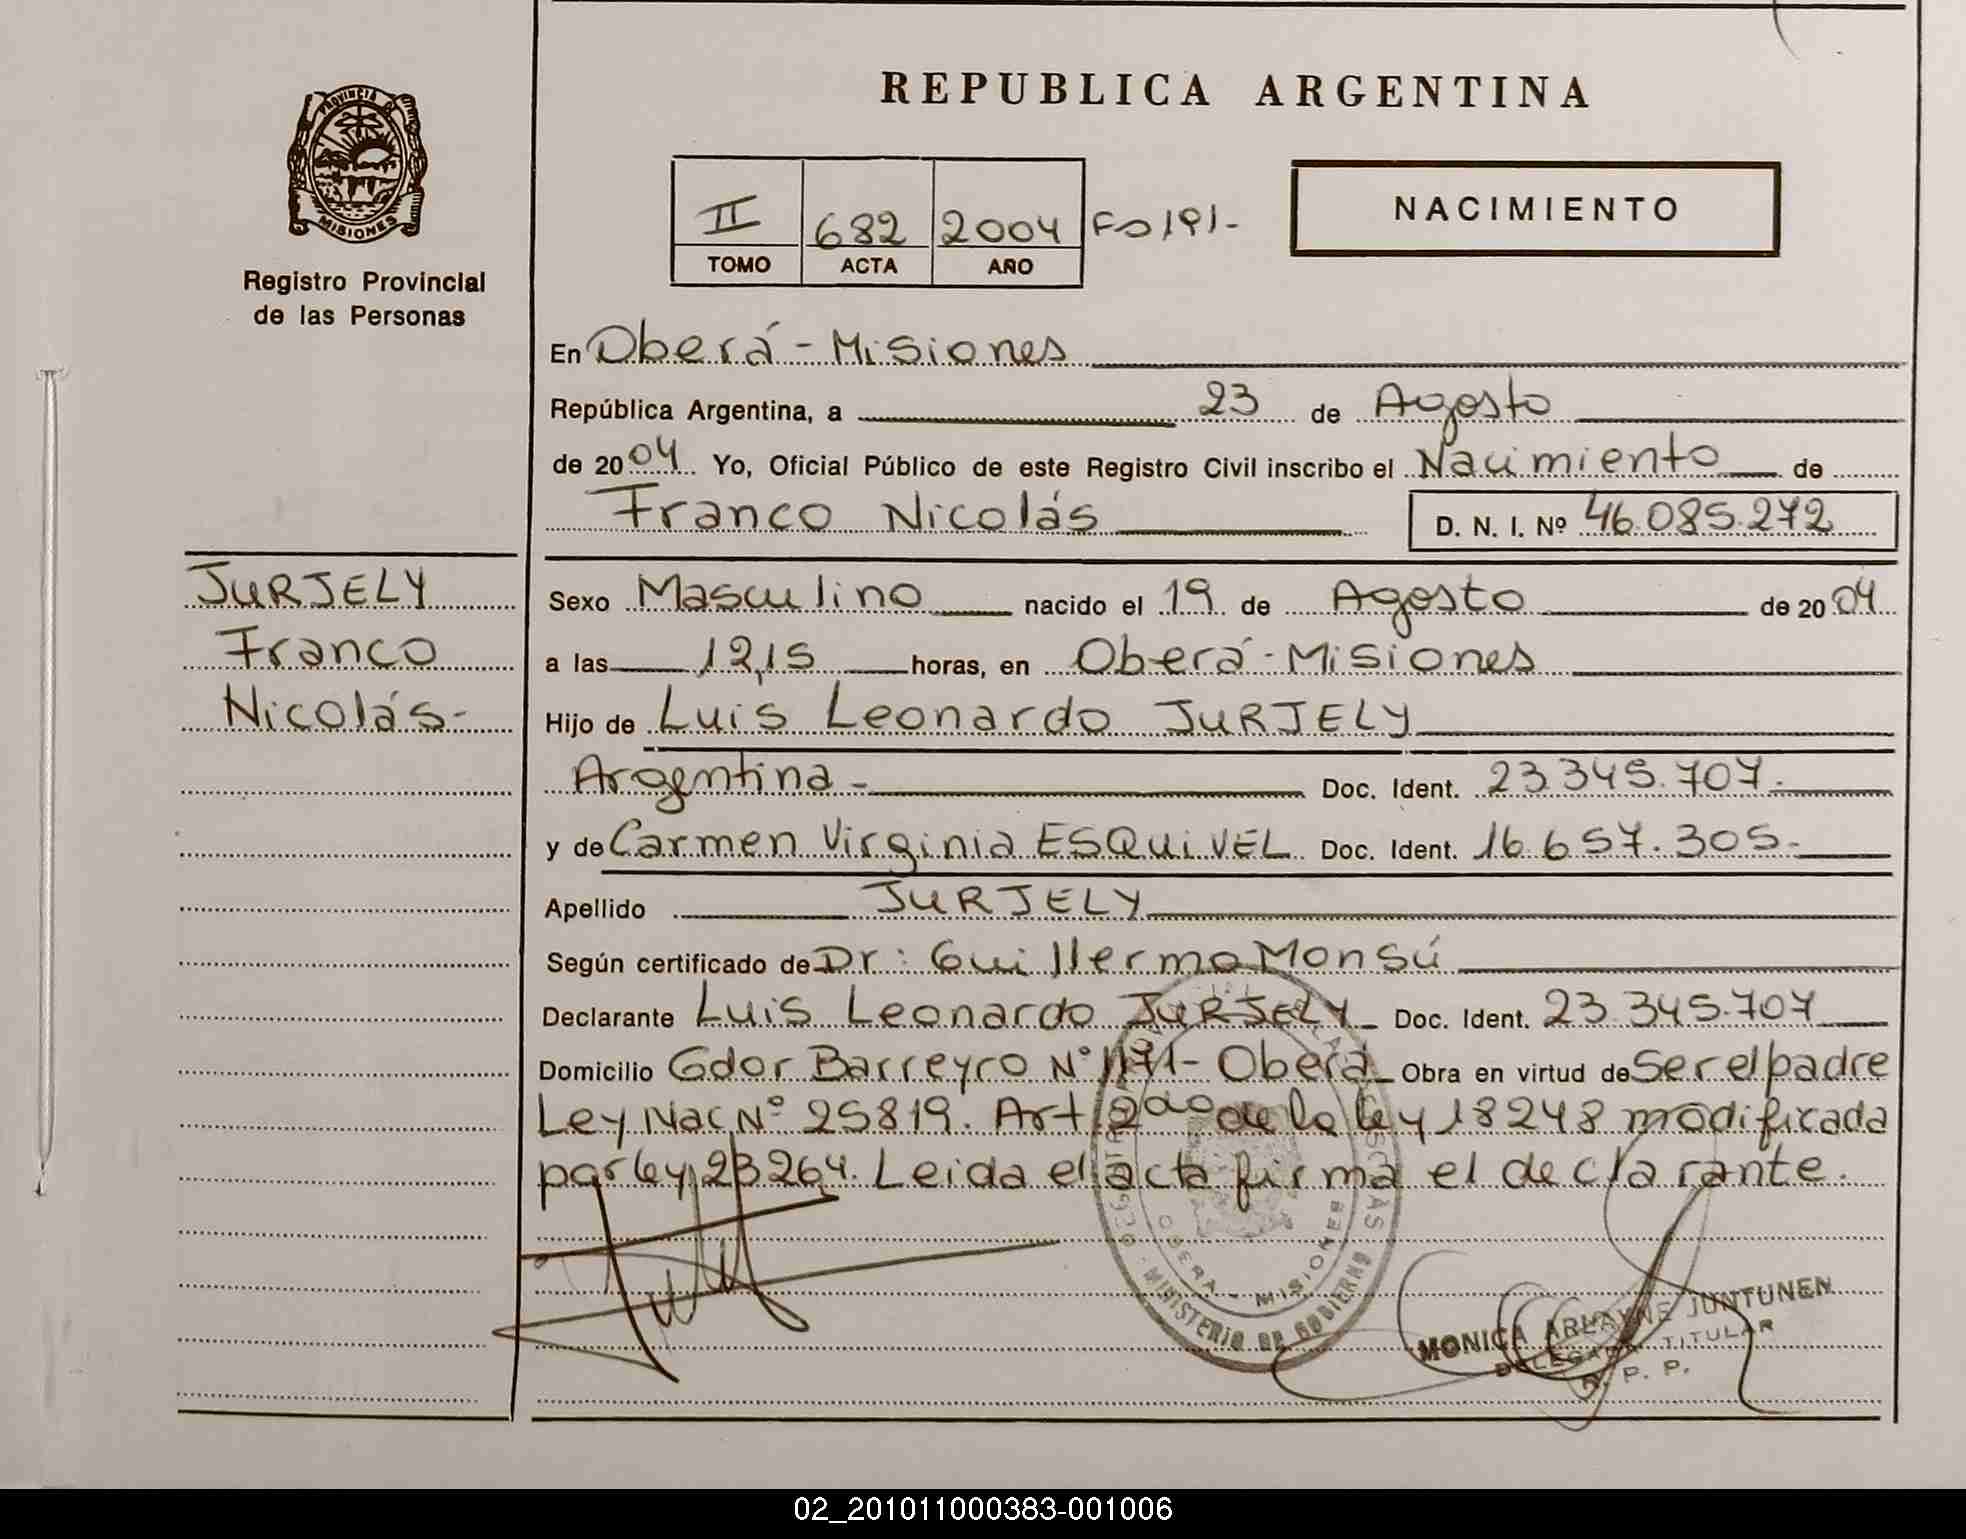 REPUBLICA ARGENTINA
PROVINCIA DE
MISIONES
Registro Provincial
de las Personas
II 682 2004 Fo 191-
TOMO ACTA AÑO
NACIMIENTO
En Oberá - Misiones
República Argentina, a 23 de Agosto
de 2004 Yo, Oficial Público de este Registro Civil inscribo el Nacimiento de
Franco Nicolás D. N. I. Nº 46.085.272
JURJELY
Franco
Nicolás-
Sexo Masculino nacido el 19 de Agosto de 2004
a las 12,15 horas, en Oberá - Misiones
Hijo de Luis Leonardo JURJELY
Argentina - Doc. Ident. 23.345.707.
y de Carmen Virginia ESQUIVEL Doc. Ident. 16.657.305.-
Apellido JURJELY
Según certificado de Dr: Guillermo Monsú
Declarante Luis Leonardo JURJELY Doc. Ident. 23.345.707
Domicilio Gdor Barreyro Nº 1171- Oberá Obra en virtud de Ser el padre
Ley Nac Nº 25819. Art 2do de la ley 18248 modificada
por ley 23264. Leida el acta firma el declarante.
OBERA - MISIONES
MINISTERIO DE GOBIERNO
MONICA ARLAYNE JUNTUNEN
DELEGADA TITULAR
R. P. P.
02_201011000383-001006